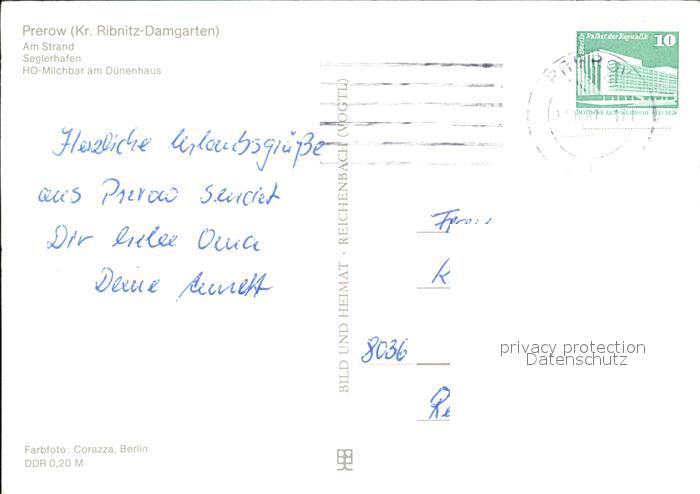 Prerow (Kr. Ribnitz-Damgarten)
Am Strand
Seglerhafen
HO-Milchbar am Dünenhaus
Berlin Palast der Republik 10
DEUTSCHE DEMOKRATISCHE REPUBLIK
PREROW
Herzliche Urlaubsgrüße
aus Prerow sendet
Dir liebe Oma
Deine Annett
BILD UND HEIMAT · REICHENBACH (VOGTL)
Frau
K
8036
privacy protection
Datenschutz
Farbfoto: Corazza, Berlin
DDR 0,20 M